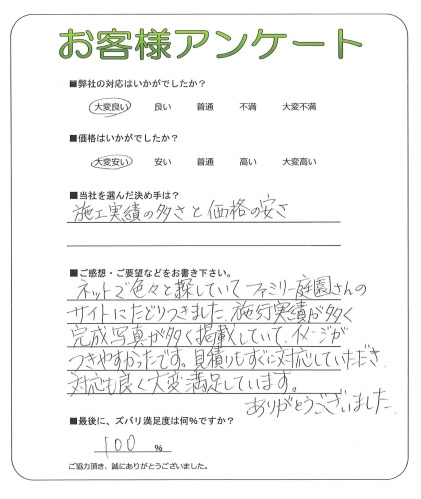 お客様アンケート
■弊社の対応はいかがでしたか？
大変良い 良い 普通 不満 大変不満
■価格はいかがでしたか？
大変安い 安い 普通 高い 大変高い
■当社を選んだ決め手は？
施工実績の多さと価格の安さ
■ご感想・ご要望などをお書き下さい。
ネットで色々と探していてファミリー庭園さんの
サイトにたどりつきました。施行実績が多く
完成写真が多く掲載していて、イメージが
つきやすかったです。見積りもすぐに対応していただき、
対応も良く大変満足しています。
ありがとうございました。
■最後に、ズバリ満足度は何％ですか？
100 ％
ご協力頂き、誠にありがとうございました。